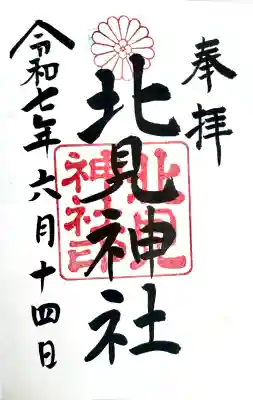 奉拝
北見神社
北見
神社印
令和七年六月十四日